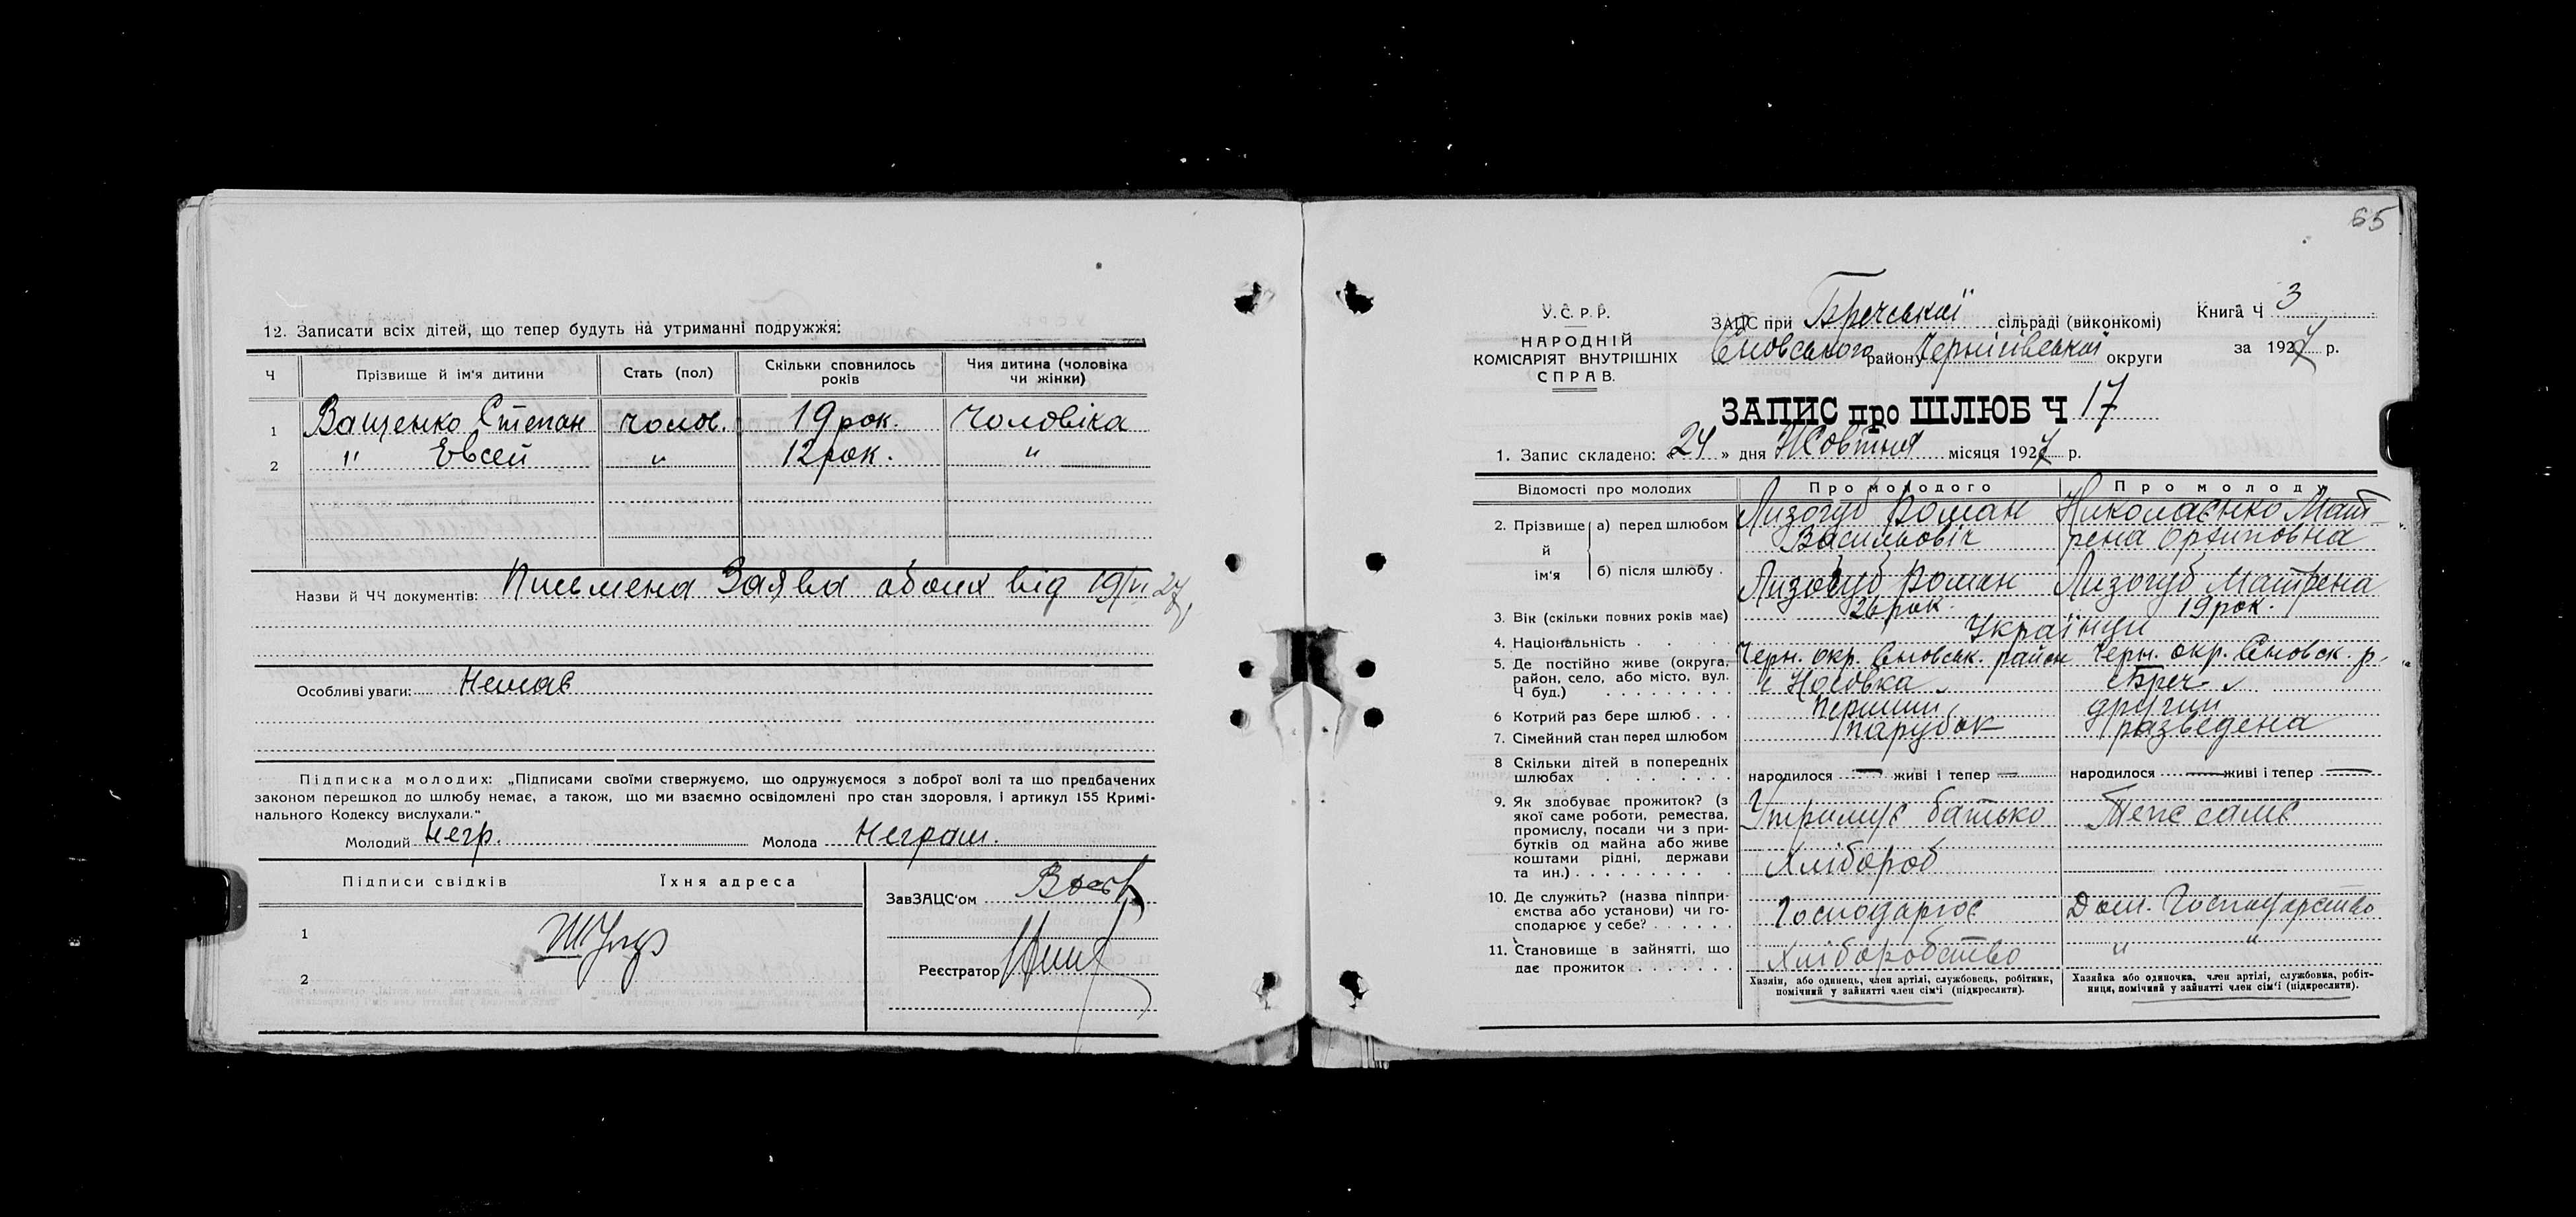 12. Записати всіх дітей, що тепер будуть на утриманні подружжя:
Ч Прізвище й ім'я дитини Стать (пол) Скільки сповнилось років Чия дитина (чоловіка чи жінки)
1 Ващенко Степан чолов. 19 рок. Чоловіка
2 " Евсей " 12 рок. "
Назви й ЧЧ документів: Письмена Заява обоих від
Особливі уваги: Немає
Підписка молодих: „Підписами своїми ствержуємо, що одружуємося з доброї волі та що предбачених
законом перешкод до шлюбу немає, а також, що ми взаємно освідомлені про стан здоровля, і артикул 155 Кримі-
нального Кодексу вислухали."
Молодий негр. Молода Неграм.
Підписи свідків Їхня адреса
ЗавЗАЦС'ом
1
Реєстратор
2
65
У.С.Р.Р.
НАРОДНІЙ
КОМІСАРІЯТ ВНУТРІШНІХ
СПРАВ.
ЗАЦС при Бречської сільраді (виконкомі)
Сновського району Чернигівської округи
Книга Ч 3
за 1927 р.
ЗАПИС про ШЛЮБ Ч 17
1. Запис складено: „24" дня Жовтня місяця 1927 р.
Відомості про молодих Про молодого Про молоду
2. Прізвище й ім'я а) перед шлюбом Лизогуб Роман Николаєнко Мат-
Васильовіч рена Орхиповна
б) після шлюбу . Лизогуб Роман Лизогуб Матрена
3. Вік (скільки повних років має) 26 рок. 19 рок.
4. Національність . Українци
5. Де постійно живе (округа, район, село, або місто, вул. Ч буд.) Черн. окр. Сновськ. район Черн. окр. Сновск. р.
с Носовка с Бреч
6 Котрий раз бере шлюб . . . Перший другий
7. Сімейний стан перед шлюбом парубок разведена
8 Скільки дітей в попередніх
шлюбах народилося — живі і тепер — народилося — живі і тепер —
9. Як здобуває прожиток? (з
якої саме роботи, ремества,
промислу, посади чи з при-
бутків од майна або живе
коштами рідні, держави
та ин.) Утримує батько Теж саме
Хлібороб
10. Де служить? (назва підпри-
ємства або установи) чи го-
сподарює у себе? Господарює Дом. Господарство
11. Становище в зайнятті, що
дає прожиток Хліборобство " "
Хазяїн, або одинець, член артілі, службовець, робітник,
помічний у зайнятті член сім'ї (підкреслити).
Хазяйка або одиночка, член артілі, службовка, робіт-
ниця, помічний у зайнятті член сім'ї (підкреслити).